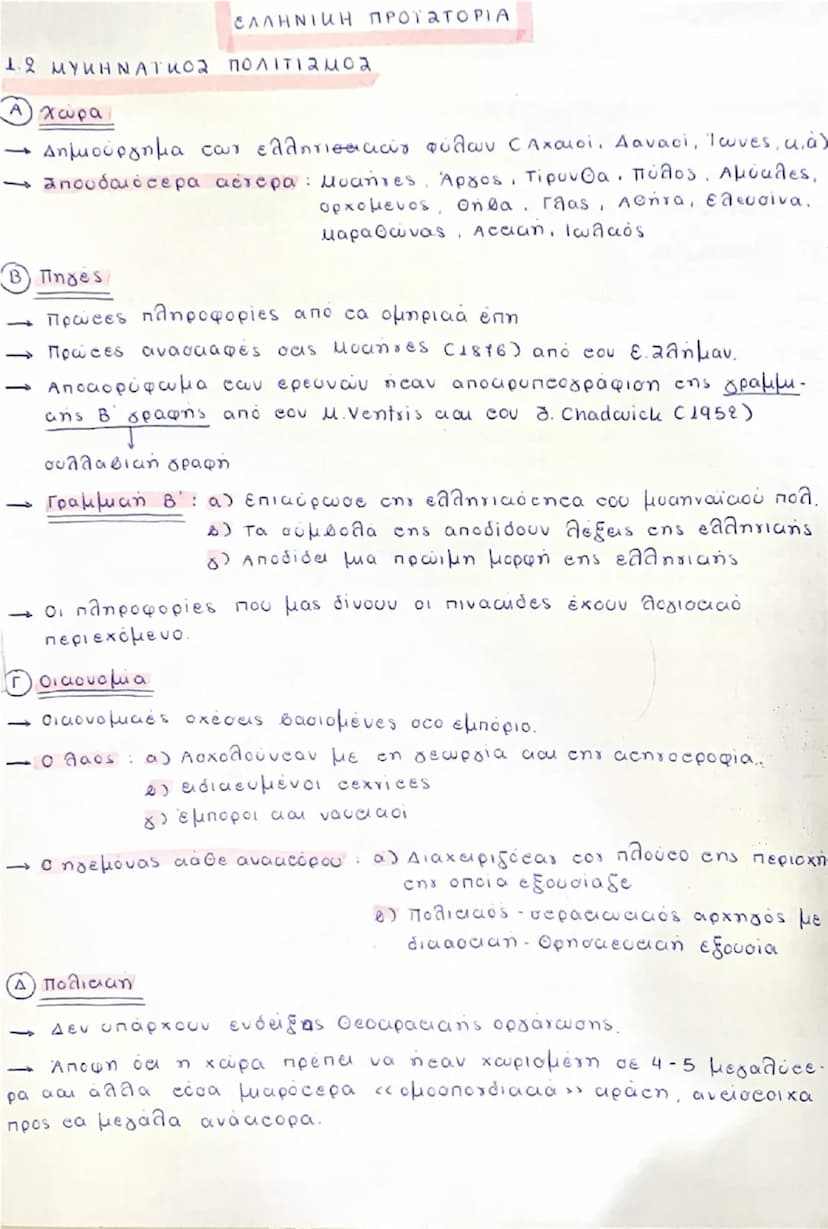 ΕΛΛΗΝΙΚΗ ΠΡΟΪΣΤΟΡΙΑ
1.2 ΜΥΚΗΝΑΪΚΟΣ ΠΟΛΙΤΙΣΜΟΣ
Α Χώρα
→ Δημιούργημα των ελληνικών φύλων (Αχαιοί, Δαναοί, Ίωνες, κ.ά)
→ Σπουδαιότερα κέντρα : Μυκήνες, Άργος, Τίρυνθα, Πύλος, Αμύκλες,
Ορχομενός, Θήβα, Γλας, Αθήνα, Ελευσίνα,
Μαραθώνας, Αττική, Ιωλκός
Β Πηγές
→ Πρώτες πληροφορίες από τα ομηρικά έπη
→ Πρώτες ανασκαφές στις Μυκήνες (1876) από τον Ε. Σλήμαν.
→ Αποκορύφωμα των ερευνών ήταν αποκρυπτογράφιση της γραμμι-
κής Β΄ γραφής από τον M. Ventris και τον J. Chadwick (1952)
συλλαβική γραφή
→ Γραμμική Β΄: α) Επικύρωσε την ελληνικότητα του μυκηναϊκού πολ.
β) Τα σύμβολά της αποδίδουν λέξεις της ελληνικής
γ) Αποδίδει μια πρώιμη μορφή της ελληνικής
→ Οι πληροφορίες που μας δίνουν οι πινακίδες έχουν λογιστικό
περιεχόμενο.
Γ Οικονομία
→ Οικονομικές σχέσεις βασισμένες στο εμπόριο.
→ Ο λαός : α) Ασχολούνταν με τη γεωργία και την κτηνοτροφία.
β) ειδικευμένοι τεχνίτες
γ) έμποροι και ναυτικοί
→ Ο ηγεμόνας κάθε ανακτόρου : α) Διαχειριζόταν τον πλούτο της περιοχή
την οποία εξουσίαζε
β) Πολιτικός - στρατιωτικός αρχηγός με
δικαστική - θρησκευτική εξουσία
Δ Πολιτική
→ Δεν υπάρχουν ενδείξης θεοκρατικής οργάνωσης.
→ Άποψη ότι η χώρα πρέπει να ήταν χωρισμένη σε 4-5 μεγαλύτε-
ρα και άλλα τόσα μικρότερα «ομοσπονδιακά» κράτη, αντίστοιχα
προς τα μεγάλα ανάκτορα.